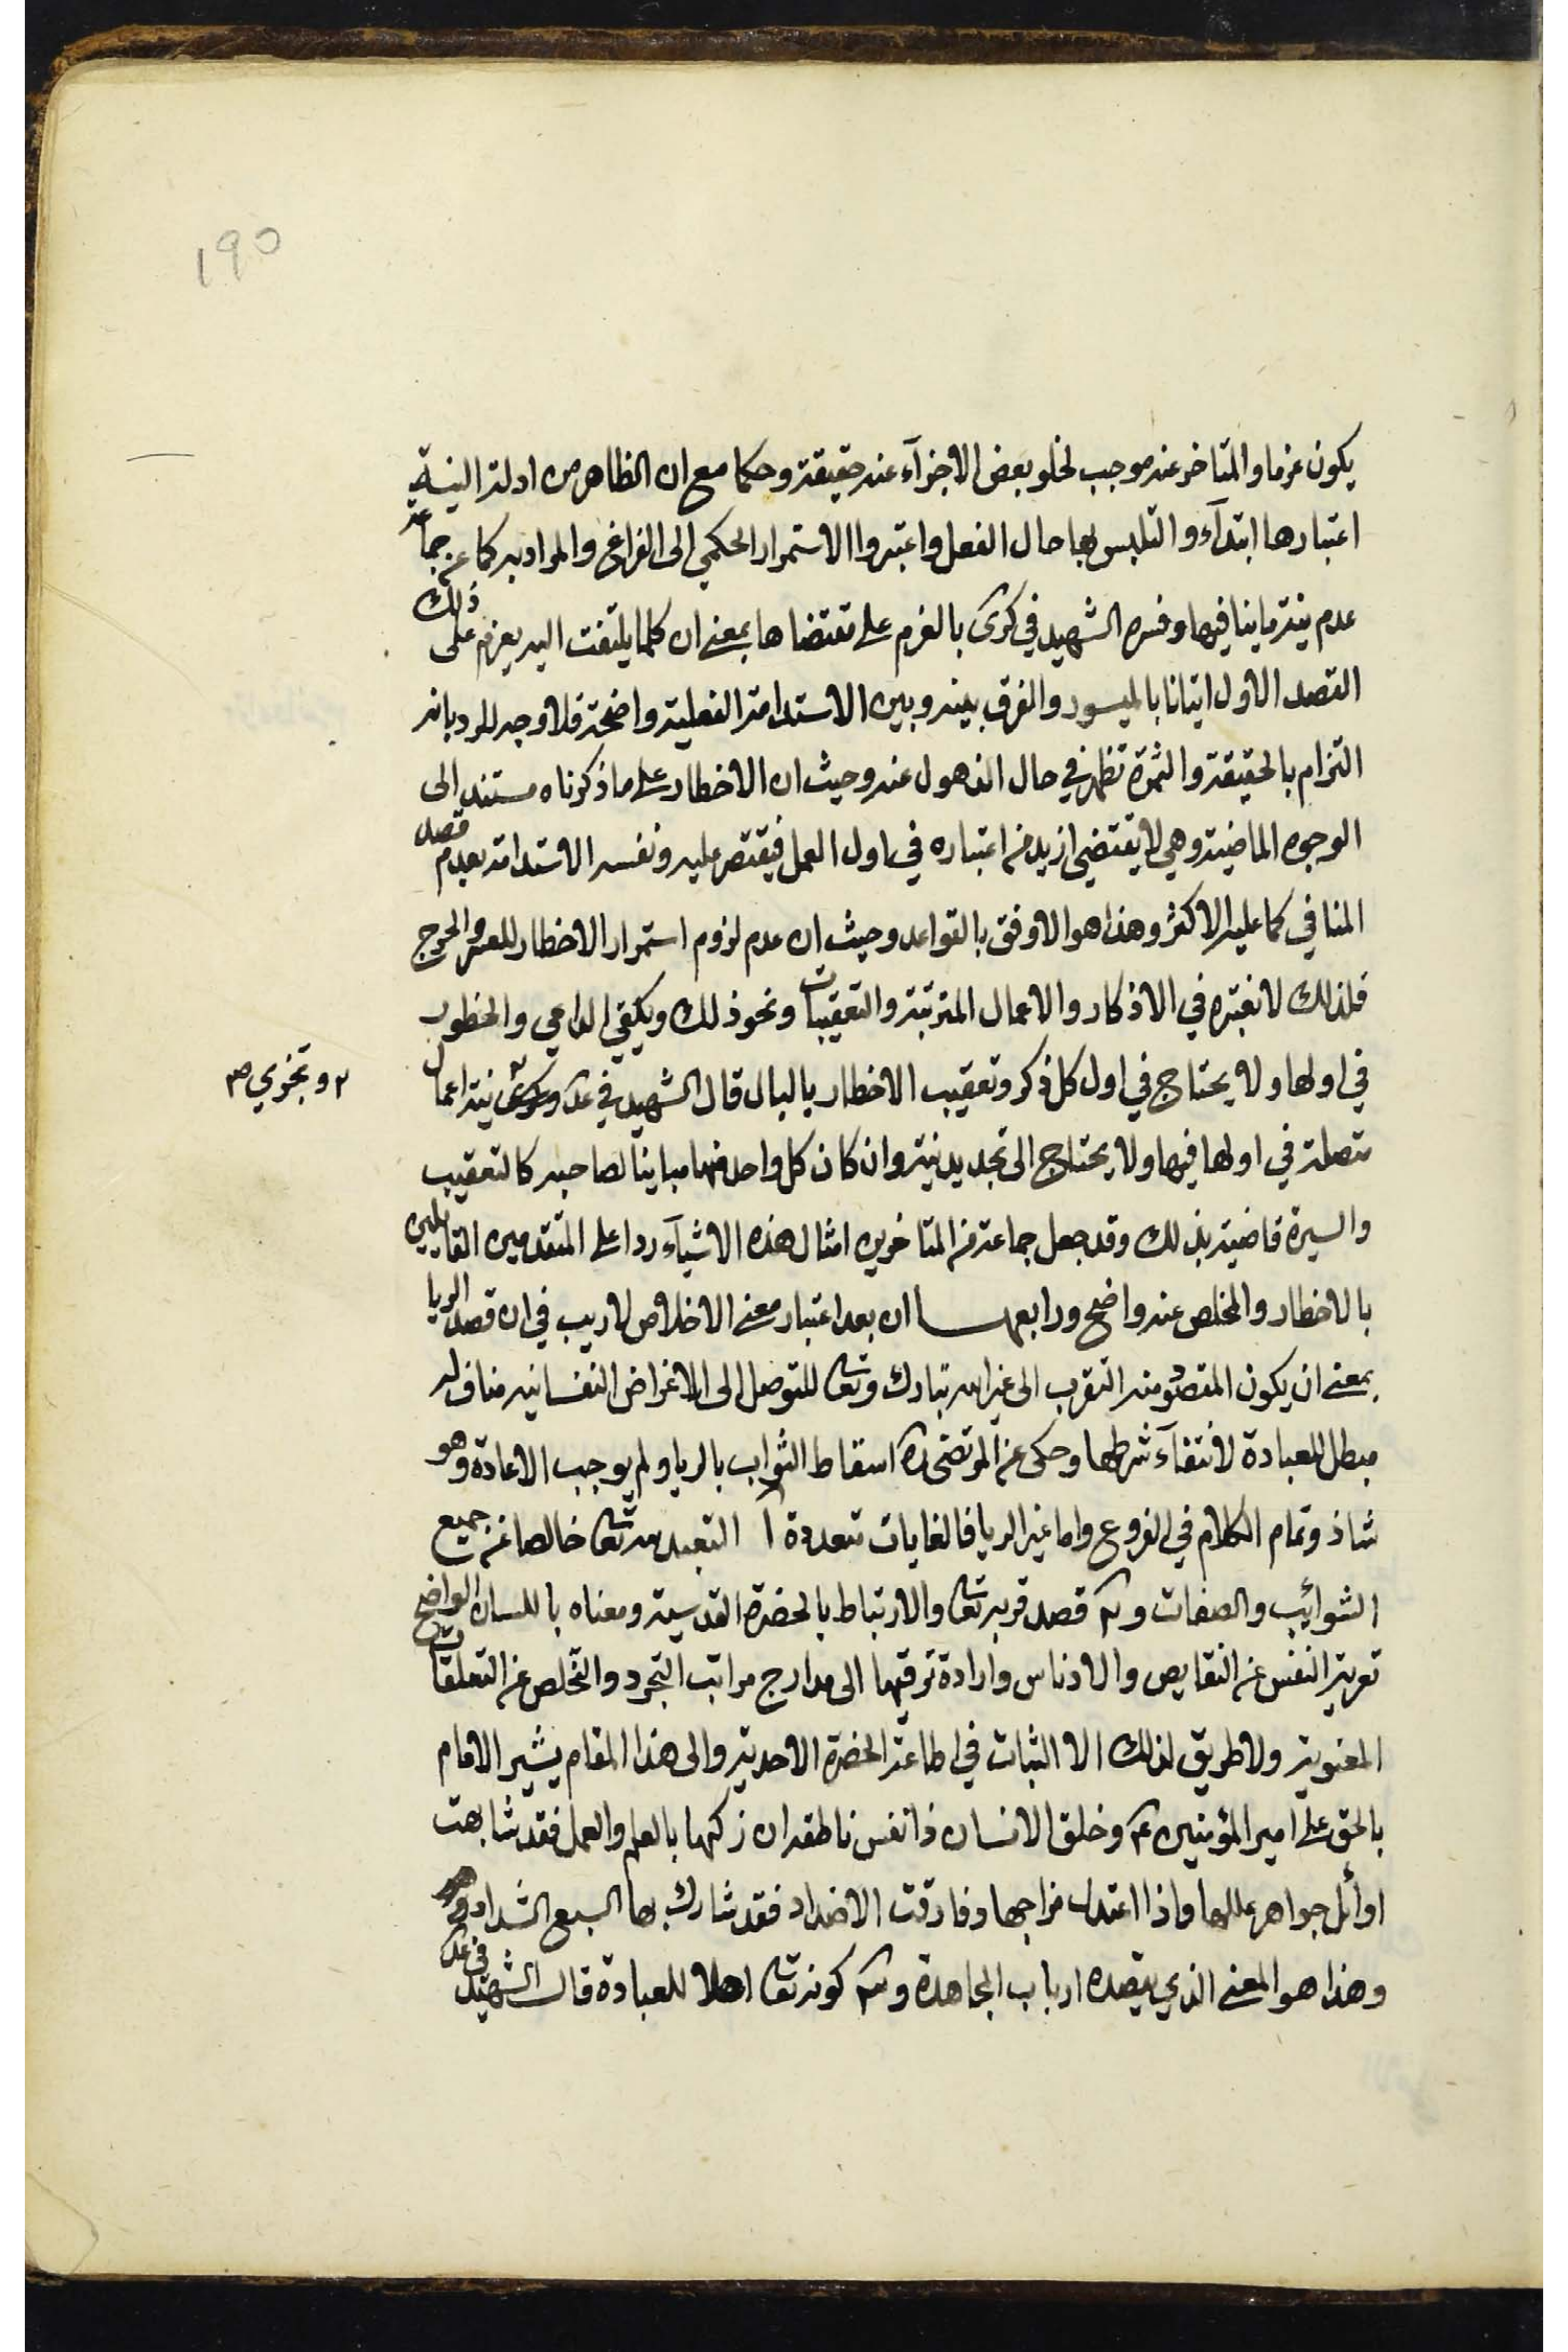 190
يكون عزما والمتاخر عنه موجب لخلو بعض الاجزآء عنه حقيقة وحكما مع ان الظاهر من ادلة النية
اعتبارها ابتدآء والتلبس بها حال الفعل واعتبروا الاستمرار الحكمي الى الفراغ والمراد به كما عن جماعة
عدم نية ما ينافيها وفسره الشهيد في كرى بالعزم على مقتضاها بمعنى ان كلما يلتفت اليه يعزم على ذلك
القصد الاول اتيانا بالميسور والفرق بينه وبين الاستدامة الفعلية واضحة فلا وجه للرد بانه
التزام بالحقيقة والثمرة تظهر في حال الذهول عنه وحيث ان الاخطار على ما ذكرناه مستند الى
الوجوه الماضية وهي لا يقتضي ازيد من اعتباره في اول العمل فيقتصر عليه ونفسر الاستدامة بعدم قصد
المنافي كما عليه الاكثر وهذا هو الاوفق بالقواعد وحيث ان عدم لزوم استمرار الاخطار للعسر والحرج
فلذلك لا نعتبره في الاذكار والاعمال المترتبة والتعقيبات ونحو ذلك ويكتفي الداعي والخطور
في اولها ولا يحتاج في اول كل ذكر وتعقيب الاخطار بالبال قال الشهيد في عد نية اعمال
٢ وتجزي ص
متصلة في اولها فيها ولا يحتاج الى تجديد نية وان كان كل واحد منها مباينا لصاحبه كالتعقيب
والسيرة قاضية بذلك وقد جعل جماعة من المتاخرين امثال هذه الاشيآء ردا على المتقدمين القايلين
بالاخطار والمخلص عنه واضح ورابعها ان بعد اعتبار معنى الاخلاص لا ريب في ان قصد الريا
بمعنى ان يكون المقصود منه التقرب الى غير الله تبارك وتعا للتوصل الى الاغراض النفسانيه مناف له
مبطل للعبادة لانتفآء شرطها وحكى عن المرتضى ره اسقاط الثواب بالريا ولم يوجب الاعادة وهو
شاذ وتمام الكلام في الفروع واما غير الريا فالغايات متعددة آ التعبد لله تعا خالصا عن جميع
الشوائب والصفات و٢ قصد قربه تعا والارتباط بالحضرة القدسية ومعناه باللسان الواضح
تعرية النفس عن النقايص والادناس وارادة ترقيها الى مدارج مراتب التجرد والتخلص عن التعلقات
المعنوية ولا طريق لذلك الا الثبات في اطاعة الحضرة الاحدية والى هذا المقام يشير الامام
بالحق على امير المؤمنين ع وخلق الانسان ذا نفس ناطقه ان زكيها بالعلم والعمل فقد شابهت
اوائل جواهر عللها واذا اعتدل مزاجها وفارقت الاضداد فقد شارك بها السبع الشداد
وهذا هو المعنى الذي يقصده ارباب المجاهدة و٣ كونه تعا اهلا للعبادة قال الشهيد في عد